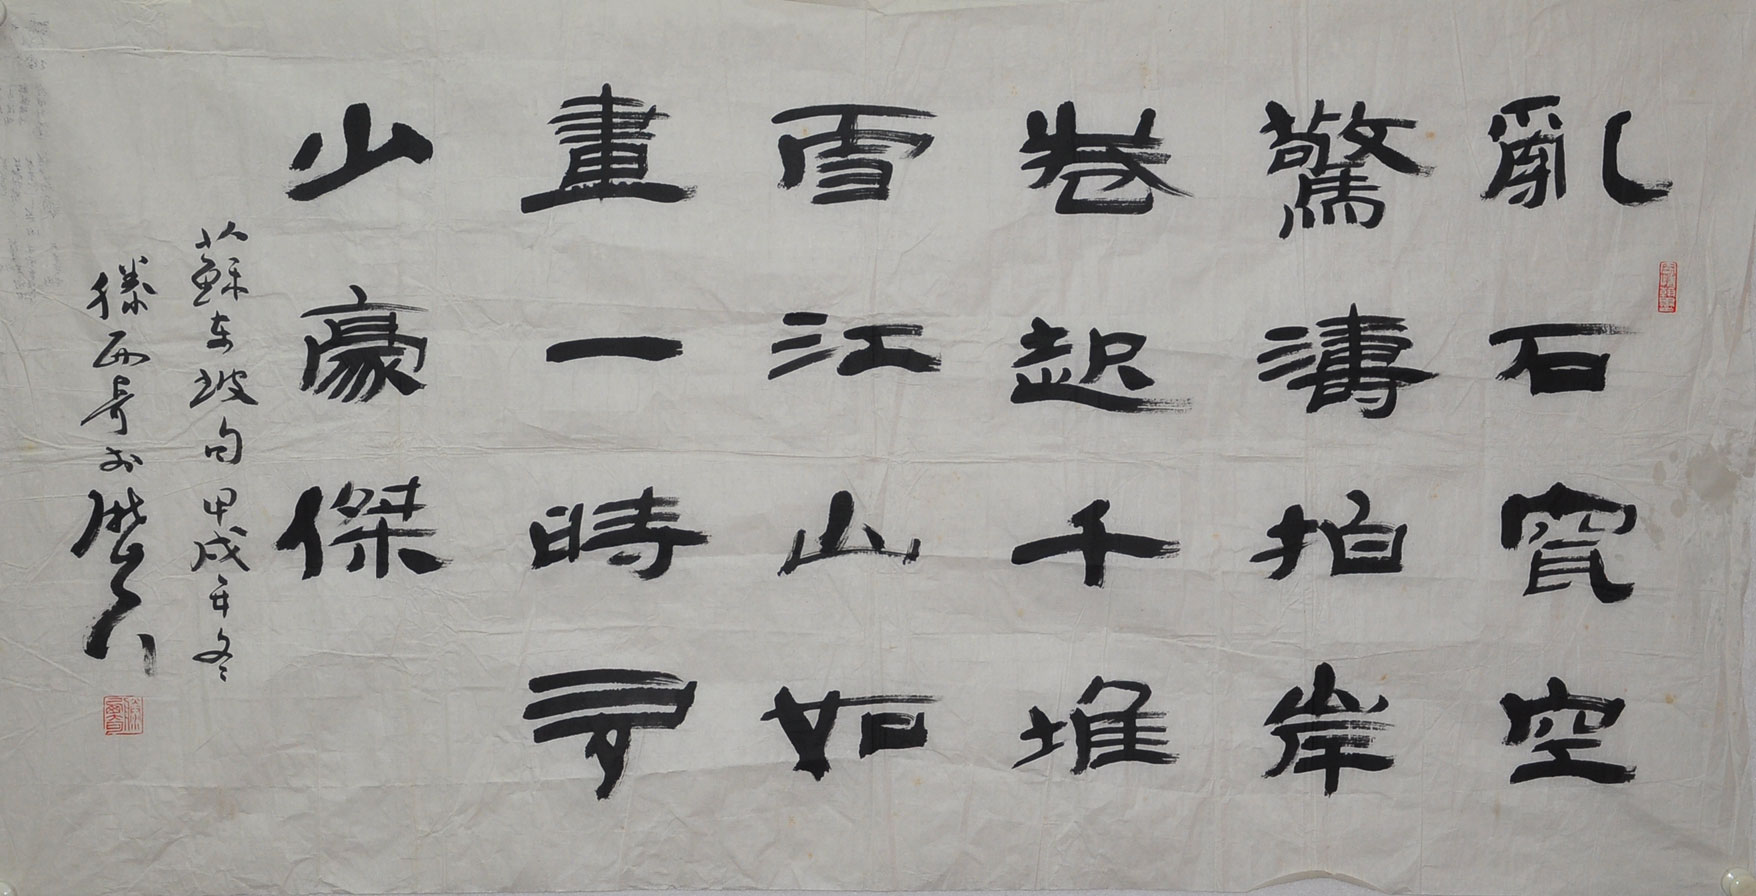 亂石穿空
驚濤拍岸
卷起千堆
雪江山如
畫一時多
少豪傑
蘇东坡句甲戌年冬
滕西奇於歷下